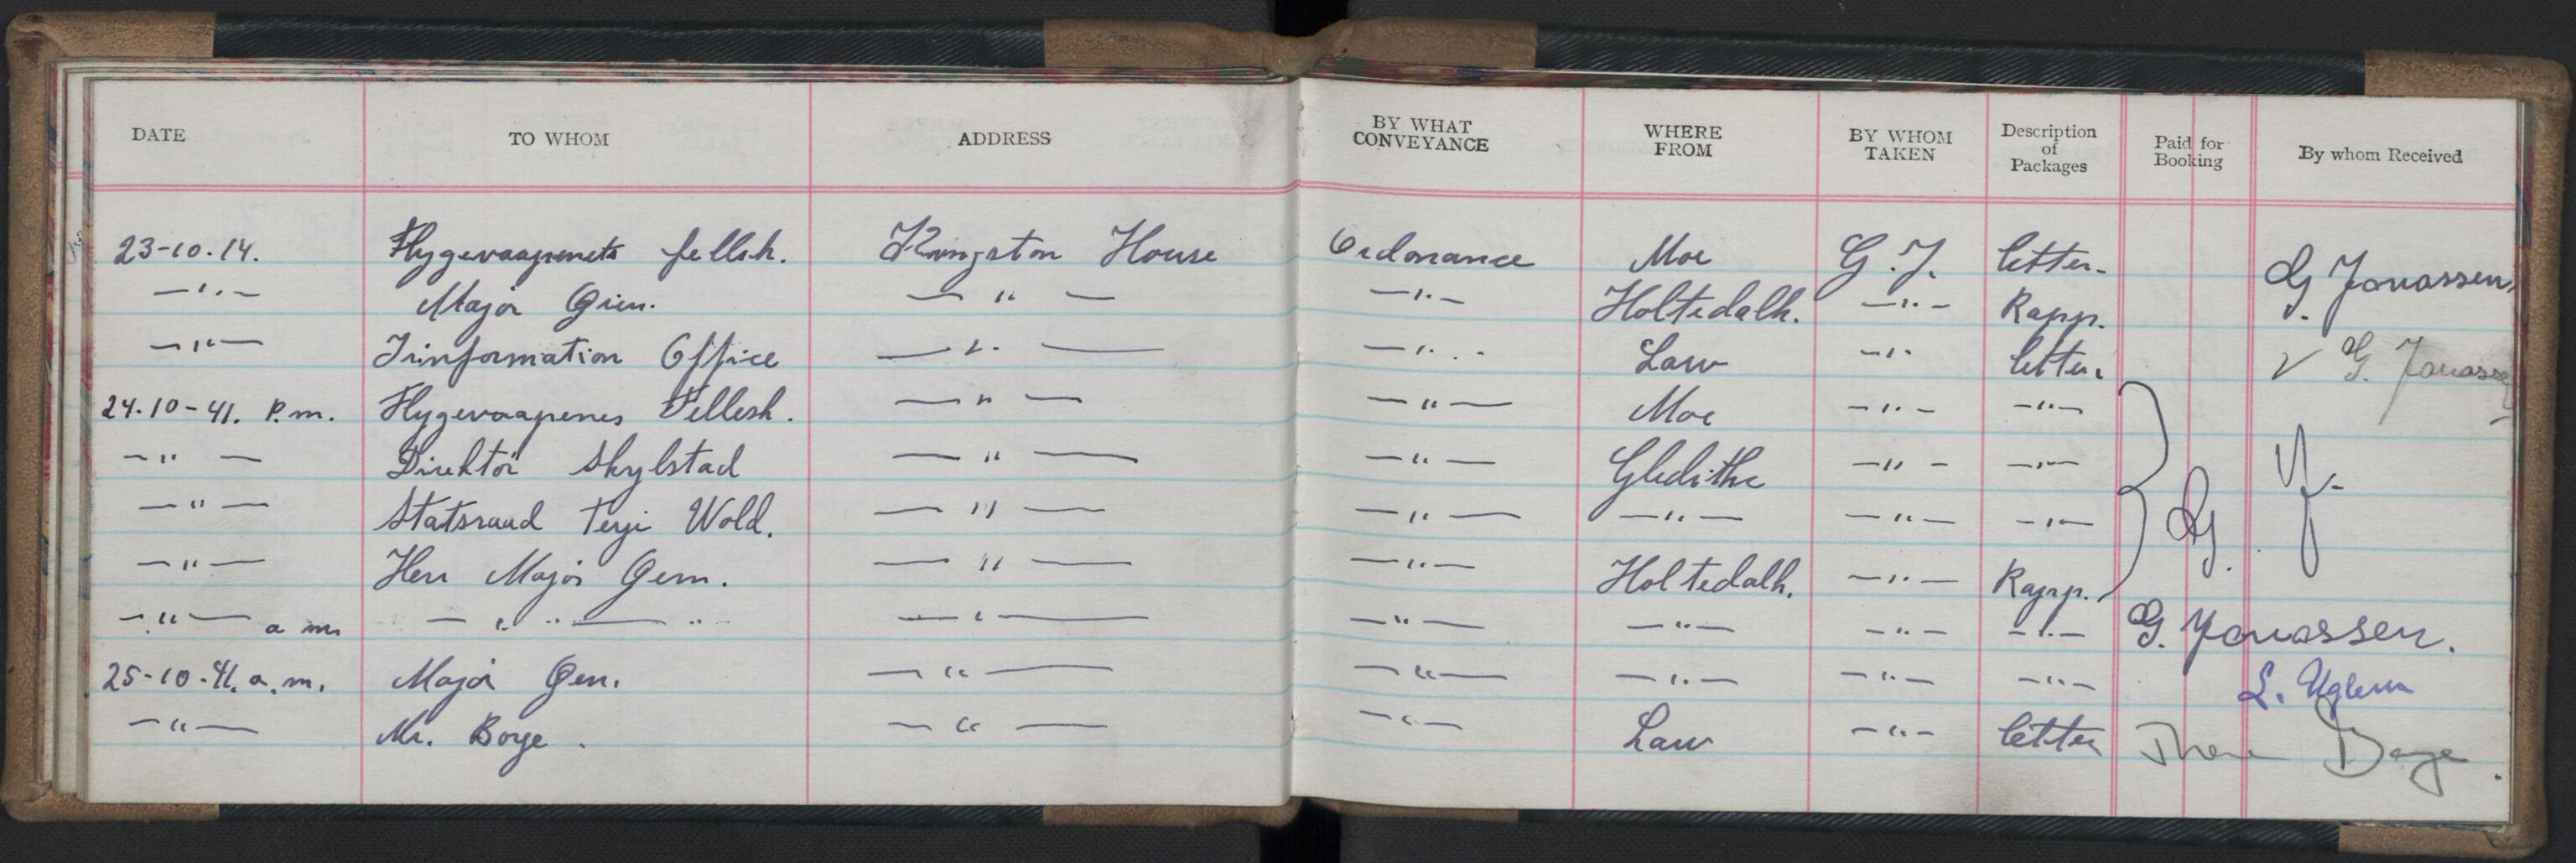 DATE TO WHOM ADDRESS BY WHAT CONVEYANCE WHERE FROM BY WHOM TAKEN Description of Packages Paid for Booking By whom Received
23-10-14. Flygevaapnets fellsk. Kingston House Ordonance Moe G.J. letter. G. Jonassen
—"— Major Grim. —"— —"— Holtedalh. —"— Rapp.
—"— Iinformation Office —"— —"— Law —"— letter. G. Jonassen
24-10-41. P.m. Flygevaapenes Fellesk. —"— —"— Moe —"— —"—
—"— Direktör Skylstad —"— —"— Gledithc —"— —"— G. J.
—"— Statsraad Terje Wold. —"— —"— —"— —"— —"—
—"— Herr Major Gem. —"— —"— Holtedalh. —"— Rapp.
—"— a m. —"— —"— —"— —"— —"— —"— G. Jonassen.
25-10-41. a.m. Major Gen. —"— —"— —"— —"— —"— L. Uglem
—"— Mr. Boye. —"— —"— Law —"— letter Boye.